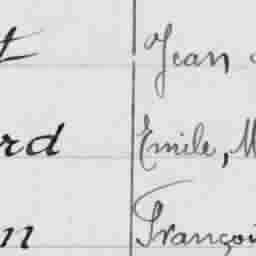 t Jean
rd Emile, M
n Françoi